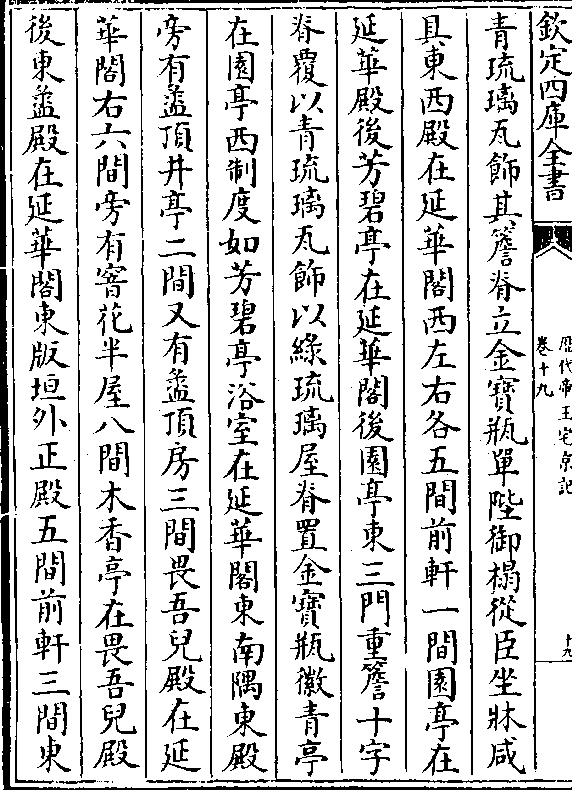 欽定四庫全書
歷代帝王宅京記
卷十九
十九
青琉璃瓦飾其簷脊立金寶瓶單陛御榻從臣坐牀咸
具東西殿在延華閣西左右各五間前軒一間園亭在
延華殿後芳碧亭在延華閣後園亭東三門重簷十字
脊覆以青琉璃瓦飾以綠琉璃屋脊置金寶瓶徽青亭
在園亭西制度如芳碧亭浴室在延華閣東南隅東殿
旁有盝頂井亭二間又有盝頂房三間畏吾兒殿在延
華閣右六間旁有窨花半屋八間木香亭在畏吾兒殿
後東盝殿在延華閣東版垣外正殿五間前軒三間東